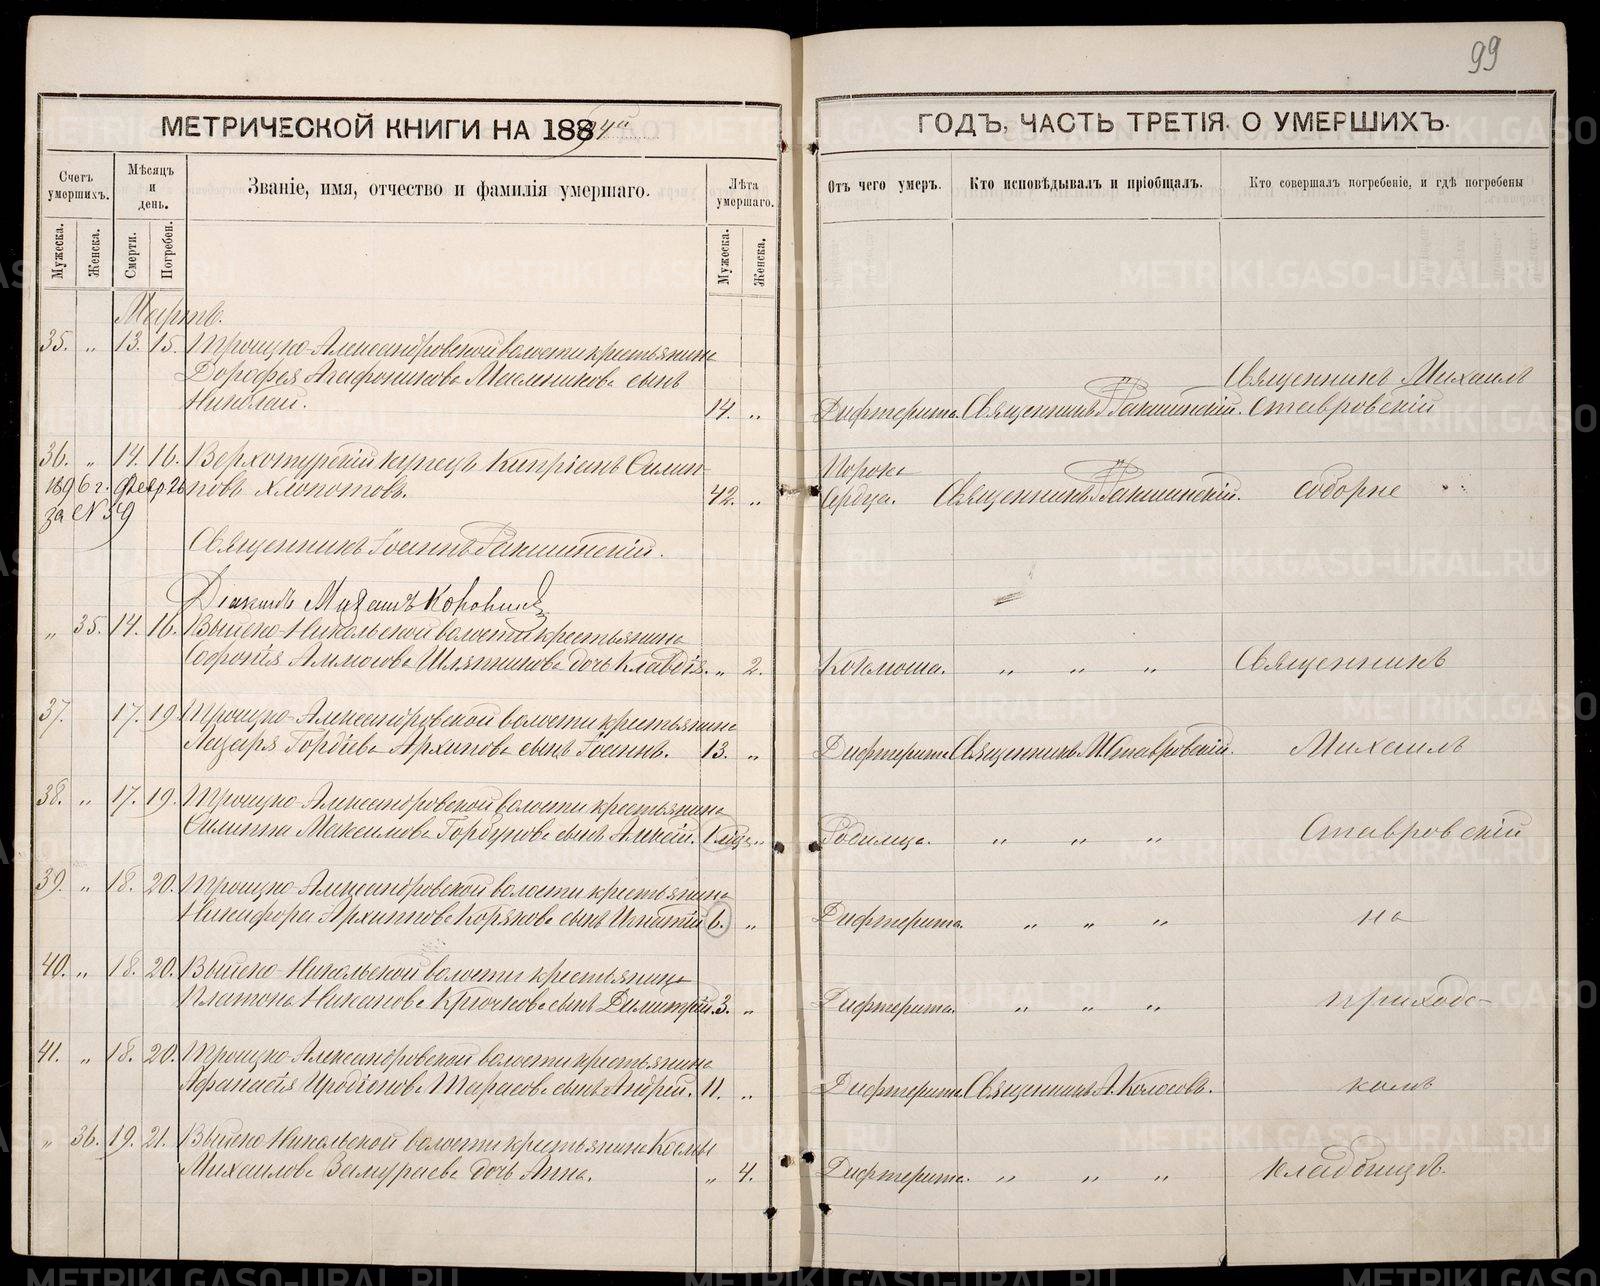 99
МЕТРИЧЕСКОЙ КНИГИ НА 1894й
ГОДЪ, ЧАСТЬ ТРЕТІЯ О УМЕРШИХЪ.
Счетъ умершихъ.
Мѣсяцъ и день.
Званіе, имя, отчество и фамилія умершаго.
Лѣта умершаго.
Отъ чего умеръ.
Кто исповѣдывалъ и пріобщалъ.
Кто совершалъ погребеніе, и гдѣ погребены
Мужеска. Женска. Смерти. Погребен. Мужеска. Женска.
Мартъ.
35. „ 13. 15. Троицко-Александровской волости крестьянина
Дорофея Агафоникова Мельникова сынъ
Николай. 14. „ Дифтерита Священникъ І. Ракшинскій. Священникъ Михаилъ Ставровскій
36. „ 14. 16. Верхотурскій купецъ Кипріанъ Филип-
повъ Хлопотовъ. 42. „ Порока сердца. Священникъ І. Ракшинскій. соборне
1896 г. Февр 26
за № 59
Священникъ Іоаннъ Ракшинскій.
Діаконъ Михаилъ Коровинъ
„ 35. 14. 16. Выйско-Никольской волости крестьянина
Софонія Аммосова Шляпникова дочь Клавдія. „ 2. Коклюша. „ „ „ Священникъ
37. 17. 19. Троицко-Александровской волости крестьянина
Лазаря Гордіева Архипова сынъ Іоаннъ. 13. „ Дифтерита Священникъ М. Ставровскій. Михаилъ
38. „ 17. 19. Троицко-Александровской волости крестьянина
Филиппа Максимова Горбунова сынъ Алексій. 1 мѣс. „ Родимца. „ „ „ Ставровскій
39. „ 18. 20. Троицко-Александровской волости крестьянина
Никифора Архипова Корякова сынъ Игнатій 6. „ Дифтерита. „ „ „ на
40. „ 18. 20. Выйско-Никольской волости крестьянина
Платона Никанова Крючкова сынъ Димитрій. 3. „ Дифтерита. „ „ „ приходс-
41. „ 18. 20. Троицко-Александровской волости крестьянина
Афанасія Иродіонова Тарасова сынъ Андрей. 11. „ Дифтерита Священникъ А. Колосовъ. комъ
„ 36. 19. 21. Выйско-Никольской волости крестьянина Космы
Михаилова Замураева дочь Анна. „ 4. Дифтерита. „ „ „ кладбищѣ.
METRIKI.GASO-URAL.RU